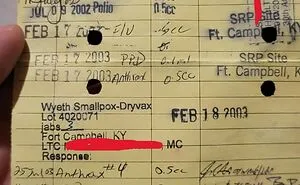 JUL 09 2002 Polio .5cc
SRP Site
FEB 17 2003 .5cc Ft. Campbell, K
FEB 17 2003 PPD 0.1ml
FEB 17 2003 Anthrax 0.5cc SRP Site
Ft. Campbell, K
Wyeth Smallpox-Dryvax FEB 18 2003
Lot 4020071
jabs 3
Fort Campbell, KY
LTC MC
Response:
25 Jul 03 Anthrax #4 0.5cc